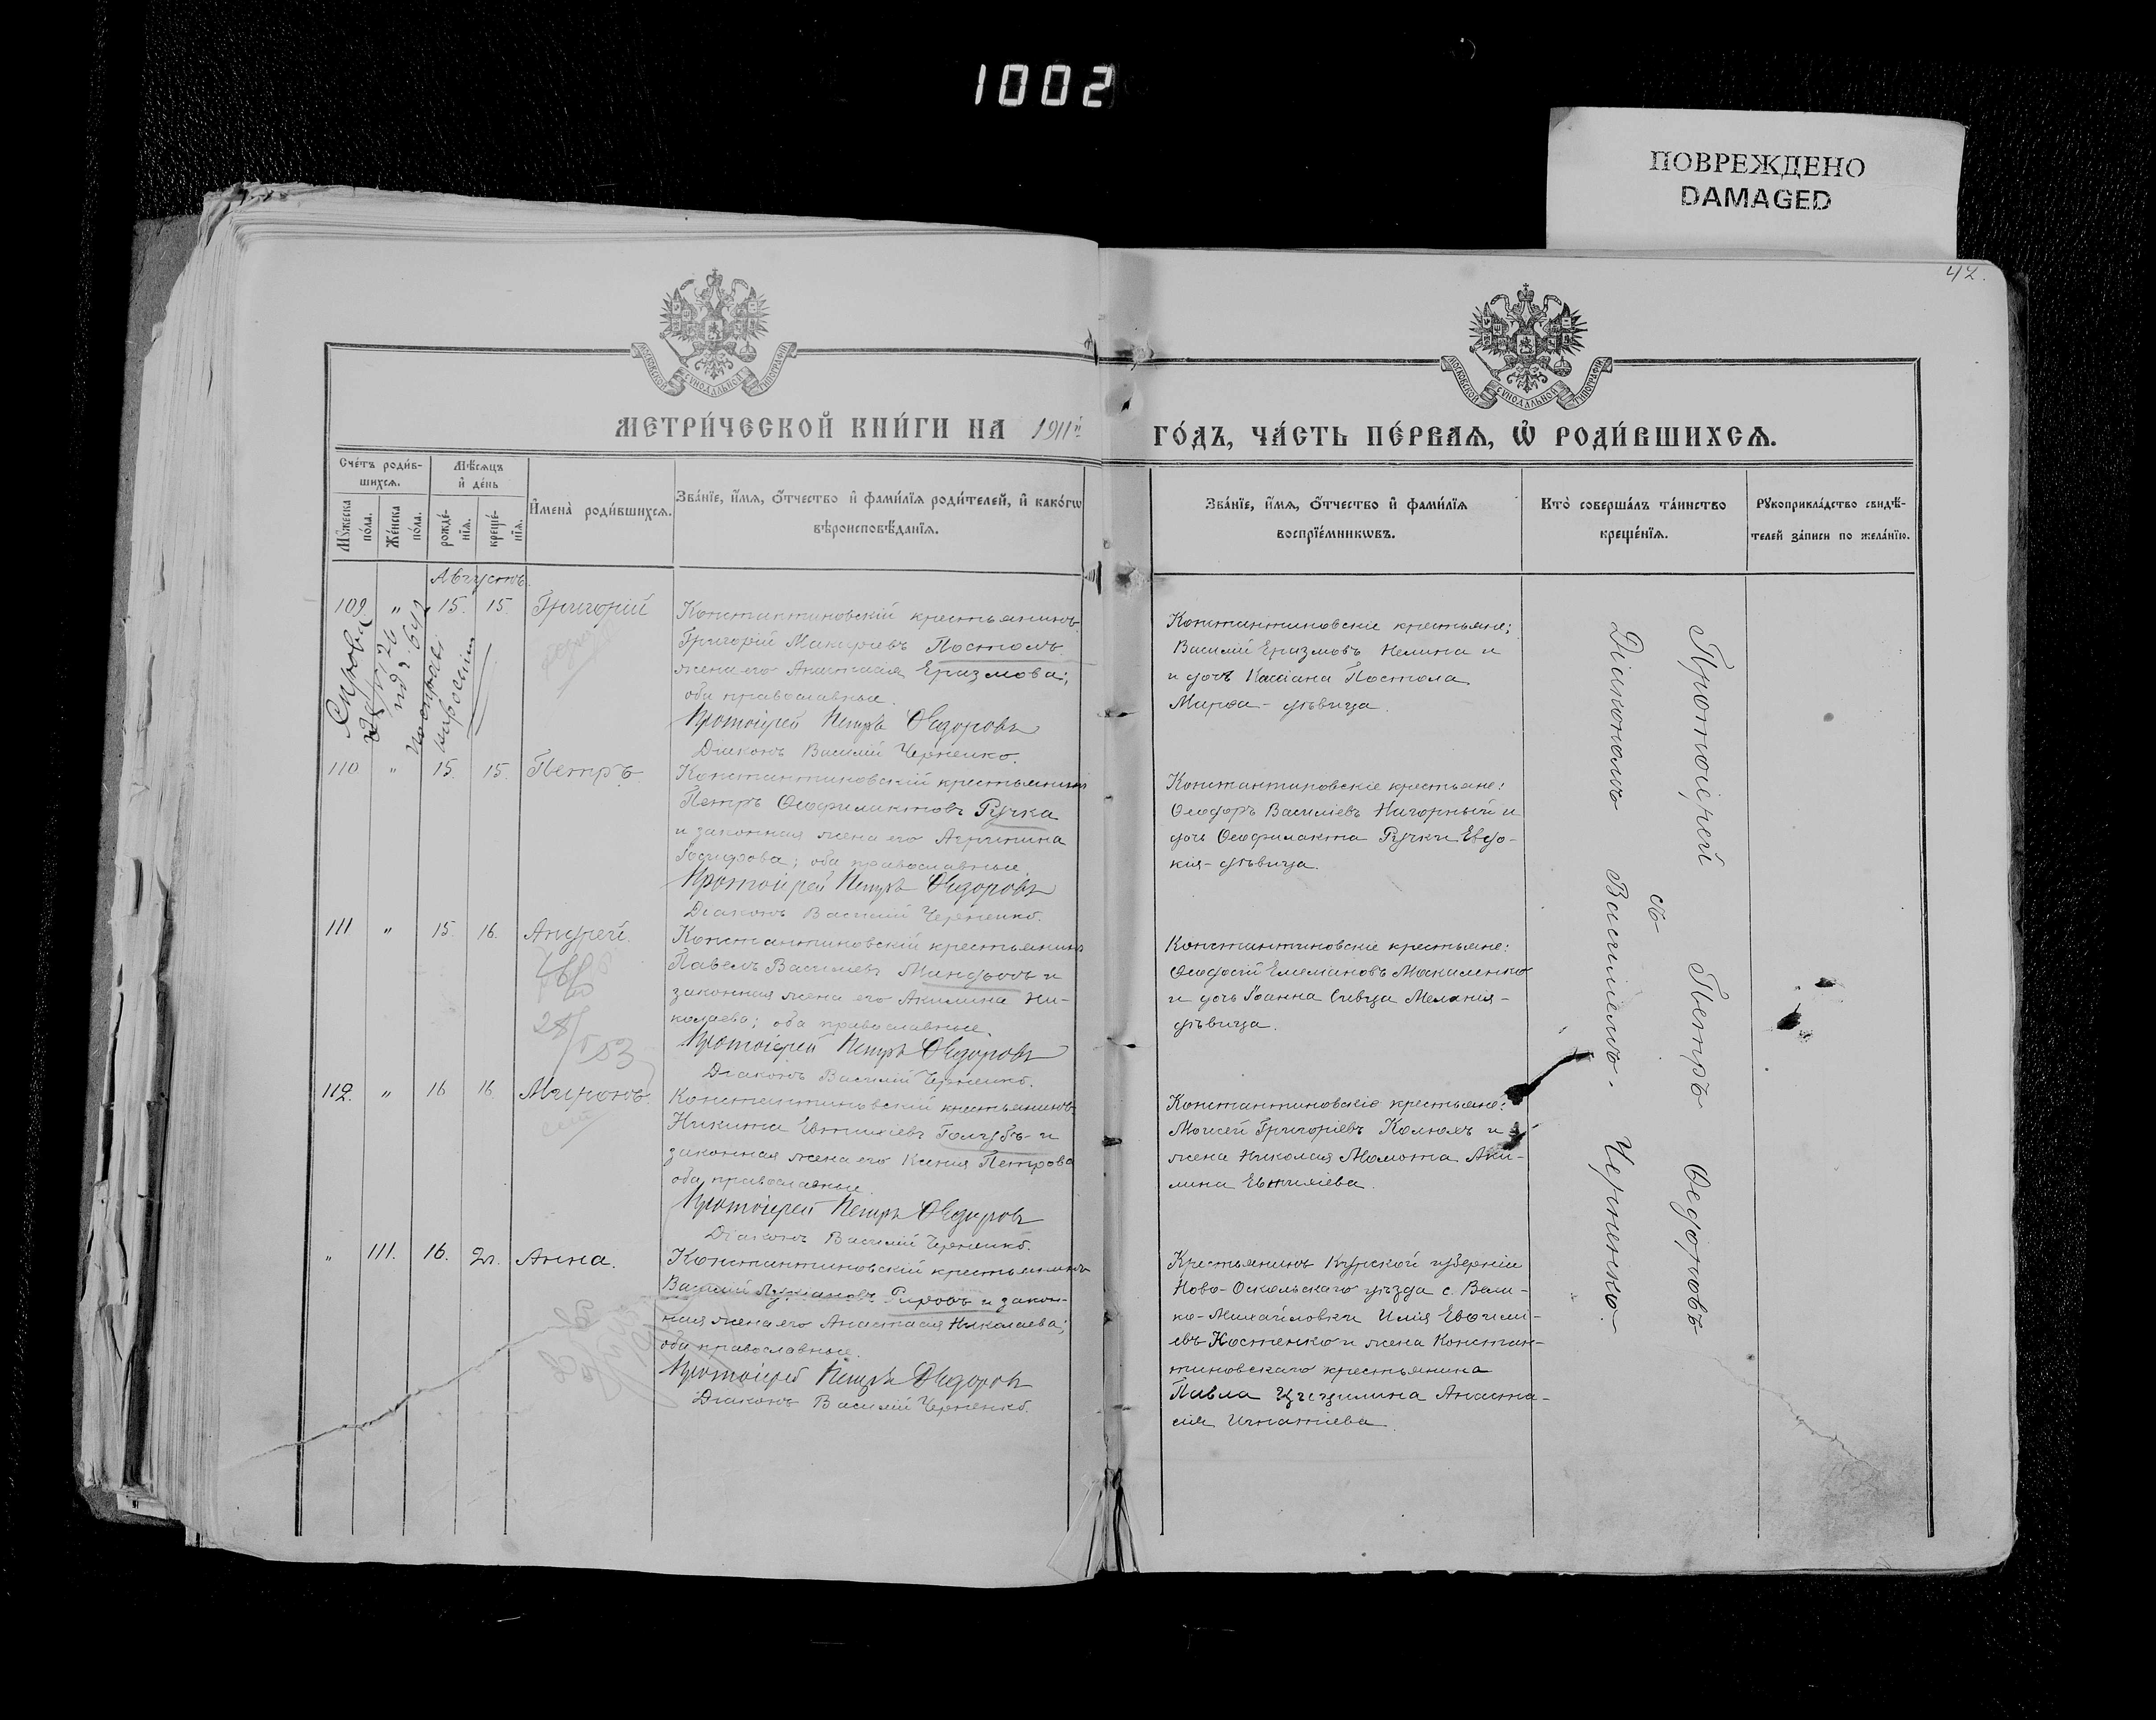 1002
ПОВРЕЖДЕНО
DAMAGED
42.
МОСКОВСКОЙ СѴНОДАЛЬНОЙ ТИПОГРАФІИ
МОСКОВСКОЙ СѴНОДАЛЬНОЙ ТИПОГРАФІИ
МЕТРИ́ЧЕСКОЙ КНИ́ГИ НА 1911й
ГО́ДЪ, ЧА́СТЬ ПЕ́РВАѦ, Ѡ҆ РОДИ́ВШИХСѦ.
Сче́тъ роди́в-
шихсѧ.
Мѣ́сѧцъ
и҆ де́нь
Мꙋ́жеска
по́ла.
Же́нска
по́ла.
рожде́-
нїѧ.
креще́-
нїѧ.
И҆мена̀ роди́вшихсѧ.
Зва́нїе, и҆́мѧ, ѻ҆́тчество и҆ фами́лїѧ роди́телей, и҆ како́гѡ
вѣроисповѣ́данїѧ.
Зва́нїе, и҆́мѧ, ѻ҆́тчество и҆ фами́лїѧ
воспрїе́мникѡвъ.
Кто̀ соверша́лъ та́инство
креще́нїѧ.
Рꙋкоприкла́дство свидѣ́-
телей за́писи по жела́нїю.
Августъ.
109. " 15. 15. Григорій
Константиновскій крестьянинъ
Григорій Макаріевъ Постолъ
жена его Анастасія Еразмова;
оба православные.
Протоіерей Петръ Ѳедоровъ
Діаконъ Василій Черненко.
Константиновскіе крестьяне;
Василій Еразмовъ Нелина и
и дочь Кассіана Постола
Марѳа - дѣвица.
110 " 15. 15. Петръ.
Константиновскій крестьянинъ
Петръ Ѳеофилактовъ Ручка
и законная жена его Агрипина
оба православные
Протоіерей Петръ Ѳедоровъ
Діаконъ Василій Черненко.
Константиновскіе крестьяне:
Ѳеодоръ Василіевъ Нагорный и
дочь Ѳеофилакта Ручки Евдо-
кія - дѣвица.
111 " 15. 16. Андрей.
Константиновскій крестьянинъ
Павелъ Василіевъ и
законная жена его Акилина Ни-
колаева; оба православные.
Протоіерей Петръ Ѳедоровъ
Діаконъ Василій Черненко.
Константиновскіе крестьяне:
Ѳеодосій Емеліановъ Макаленко
и дочь Іоанна Сивца Меланія -
дѣвица.
112. " 16 16. Миронъ.
Константиновскій крестьянинъ
Никита Евтихіевъ Голубъ и
законная жена его Ксенія Петрова
оба православные.
Протоіерей Петръ Ѳедоровъ
Діаконъ Василій Черненко.
Константиновскіе крестьяне:
Моисей Григоріевъ и
жена Николая Момота Аки-
лина Евтихіева.
" 111. 16. 21. Анна.
Константиновскій крестьянинъ
Василій и закон-
ная жена его Анастасія Николаева;
оба православные.
Протоіерей Петръ Ѳедоровъ
Діаконъ Василій Черненко.
Крестьянинъ Курской губерніи
Ново-Оскольскаго уѣзда с. Вели-
ко-Михайловки Илія Евѳимі-
евъ Костенко и жена Констан-
тиновскаго крестьянина
Павла Анаста-
сія Игнатіева.
Протоіерей Петръ Ѳедоровъ
съ
Діакономъ Василіемъ Черненко.